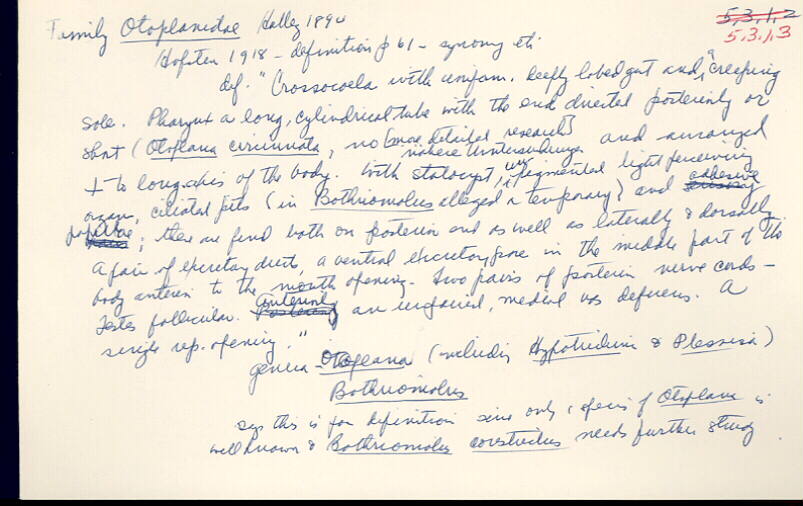 Family Otoplanidae Hallez 1890
5.3.1.2
5.3.1.3
Hofsten 1918 - definition p 61 - synonomy etc
def. "Crossocoela with uniform, deeply lobed gut and "creeping
sole. Pharynx a long, cylindrical tube with the end directed posteriorly or
short (Otoplana circinnata, no [more detailed research] nähere Untersuchungen and arranged
⊥ to long axis of the body. With statocyst, unpigmented light perceiving
organs, ciliated pits (in Bothriomolus alleged a temporary) and adhesive
papillae; there are found both on posterior end as well as laterally & dorsally
A pair of excretory ducts, a ventral excretory pore in the middle part of the
body anterior to the mouth opening. Two pairs of posterior nerve cords -
Testes follicular. Anteriorly an unpaired, medial vas deferens. A
single rep. opening."
genera - Otoplana (including Hypotrichina & Plessisia)
Bothriomolus
says this is poor definition since only 1 species of Otoplana is
well known & Bothriomolus constrictus needs further study